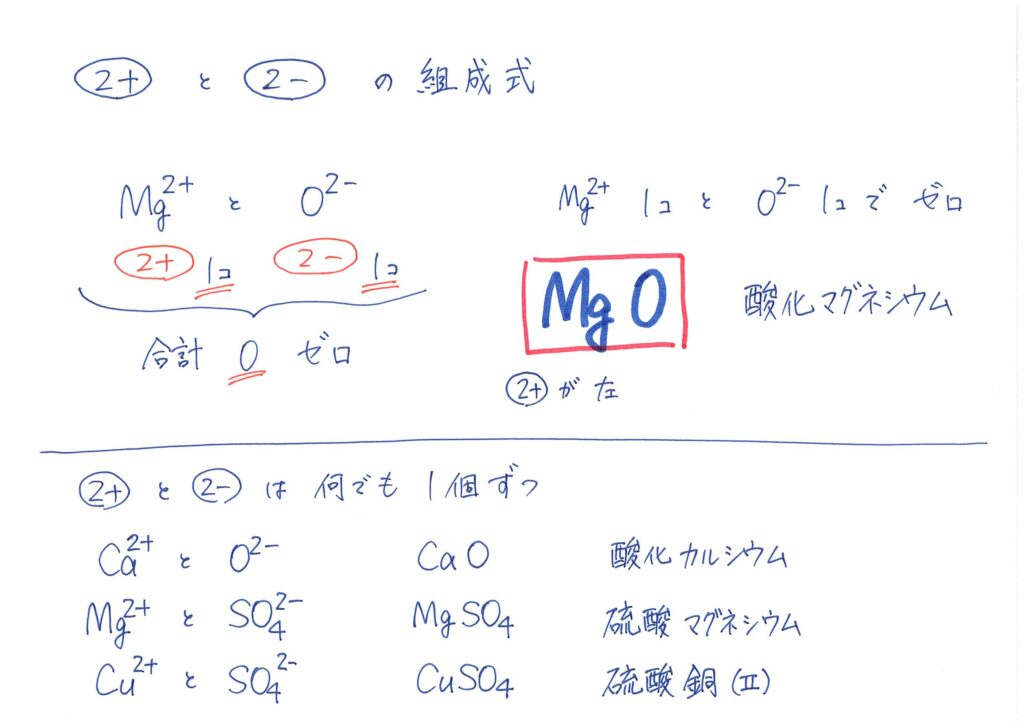 2+ と 2− の 組成式
Mg²⁺ と O²⁻
2+ 1コ 2− 1コ
合計 0 ゼロ
Mg²⁺ 1コ と O²⁻ 1コ で ゼロ
MgO 酸化マグネシウム
2+ が 左
2+ と 2− は 何でも 1個ずつ
Ca²⁺ と O²⁻ CaO 酸化カルシウム
Mg²⁺ と SO₄²⁻ MgSO₄ 硫酸マグネシウム
Cu²⁺ と SO₄²⁻ CuSO₄ 硫酸銅(II)